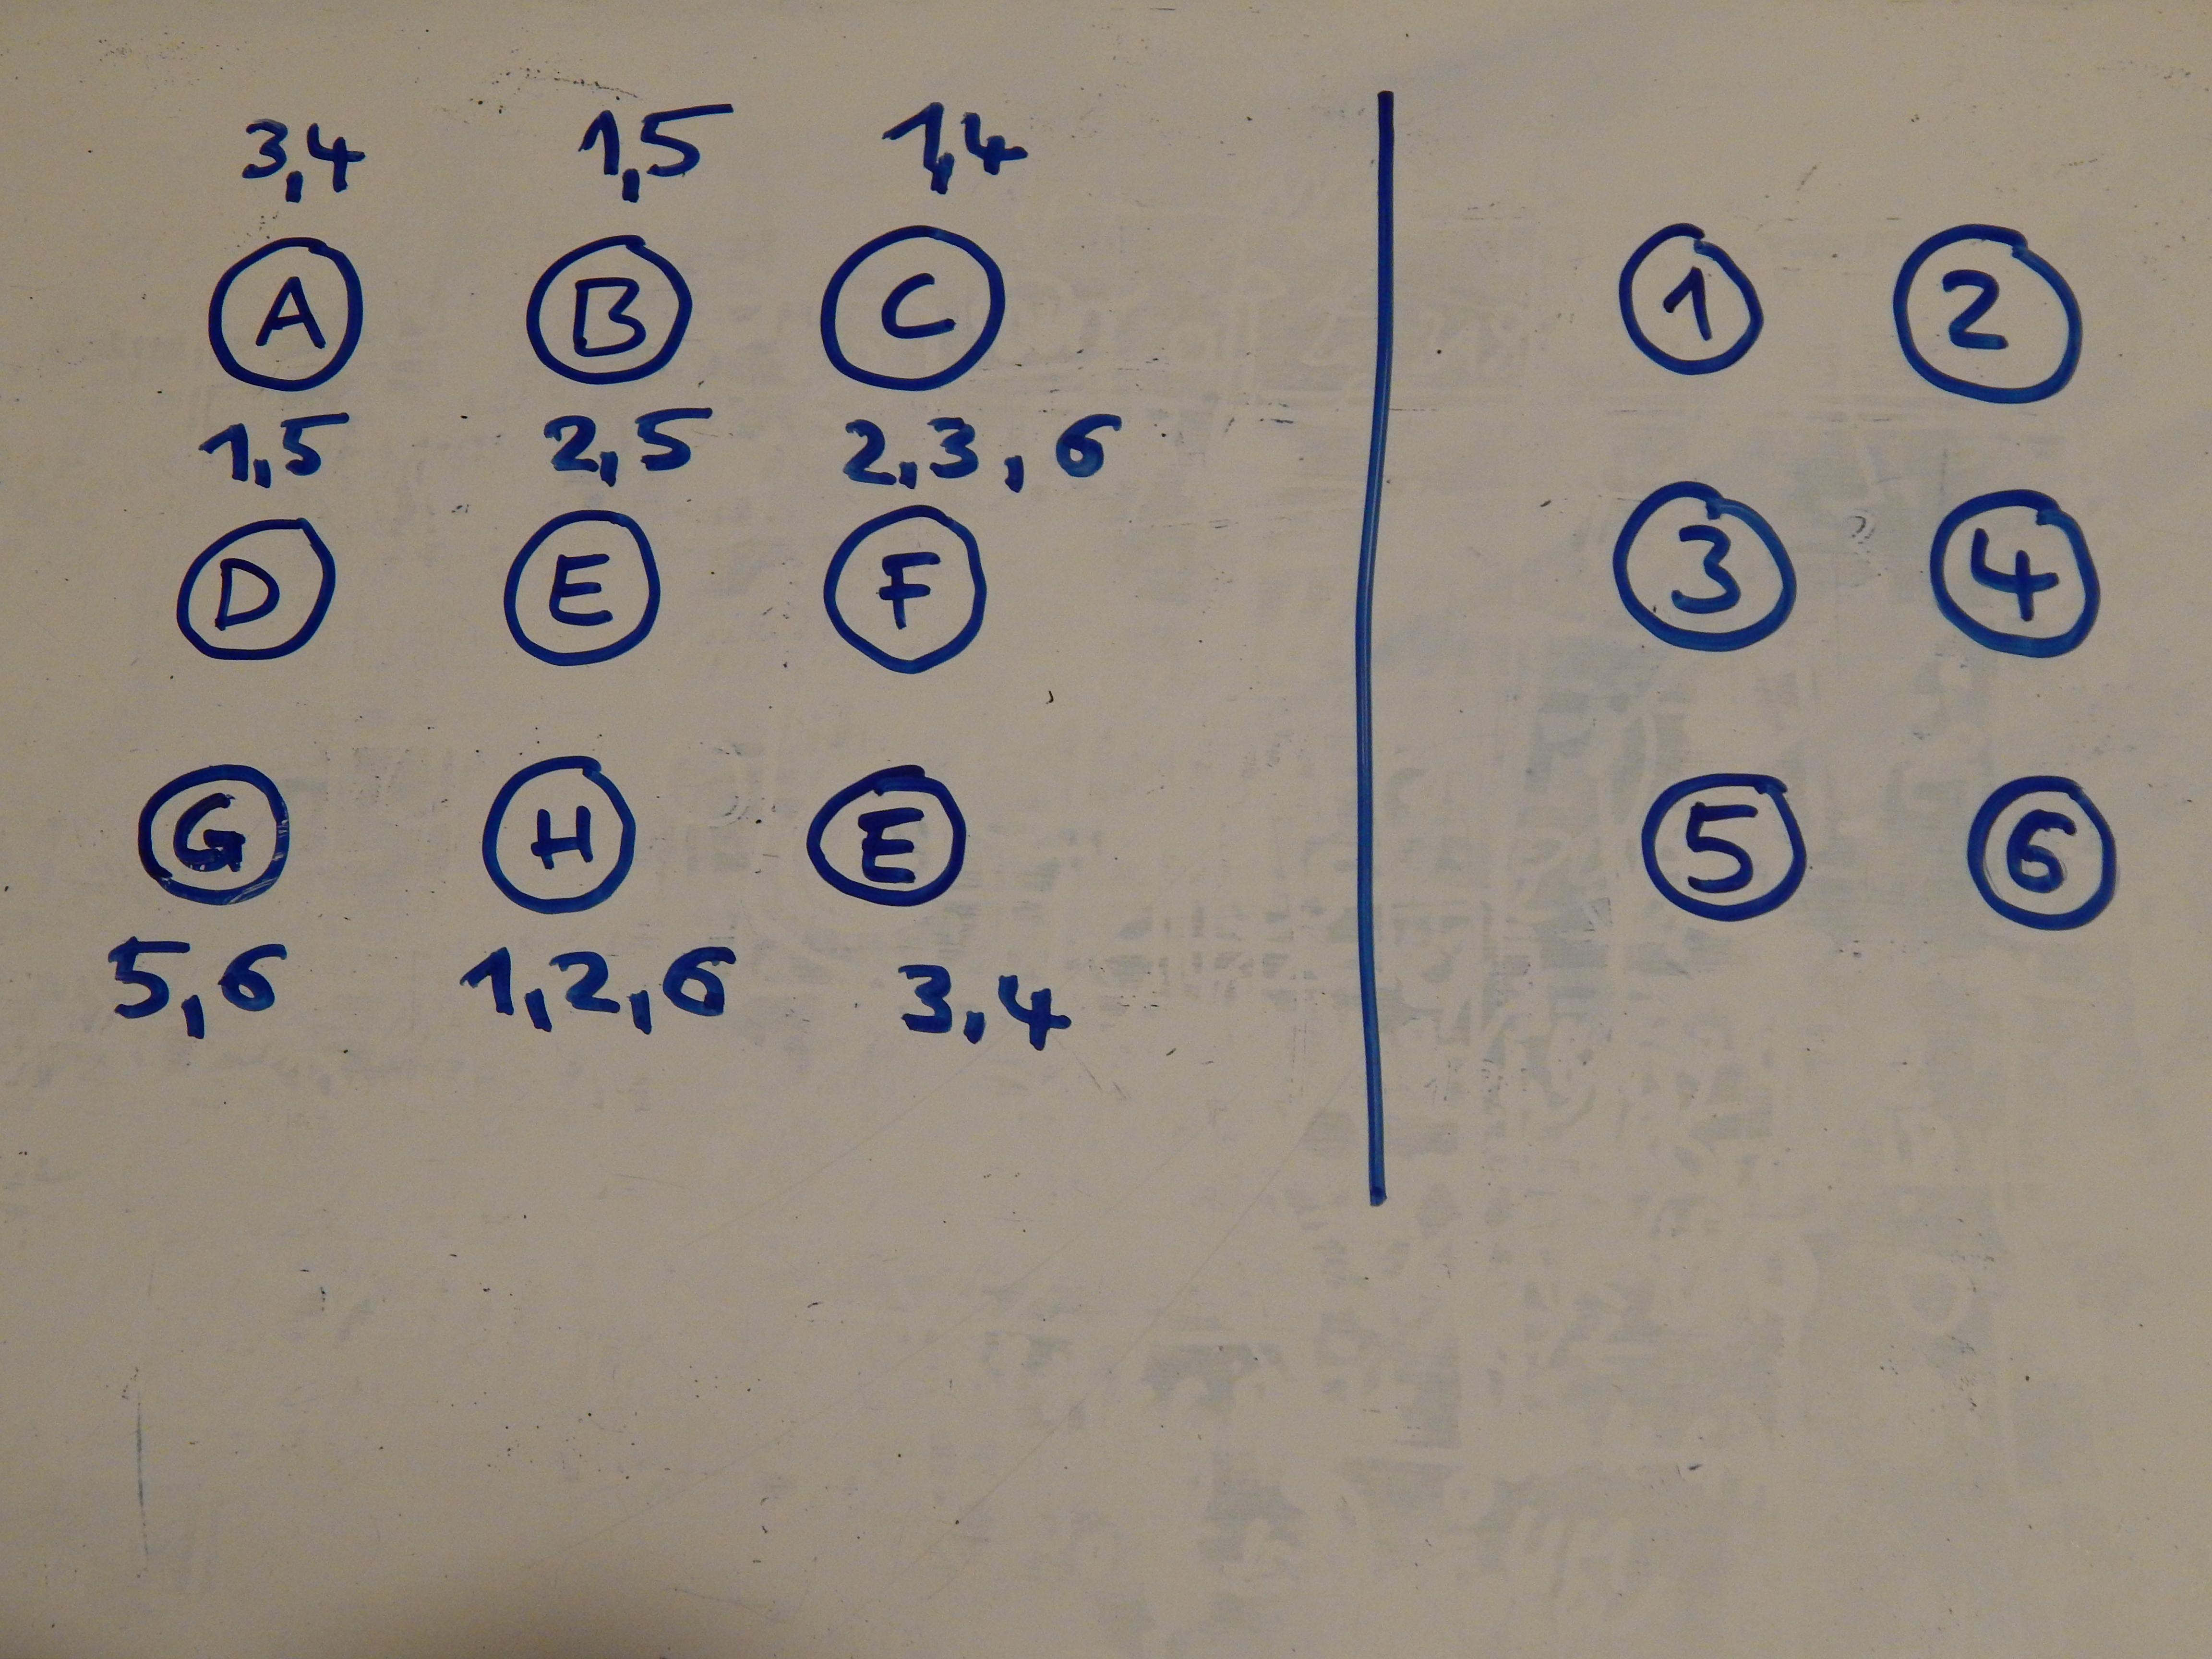 3,4 1,5 1,4
A B C 1 2
1,5 2,5 2,3,6
D E F 3 4
G H E 5 6
5,6 1,2,6 3,4